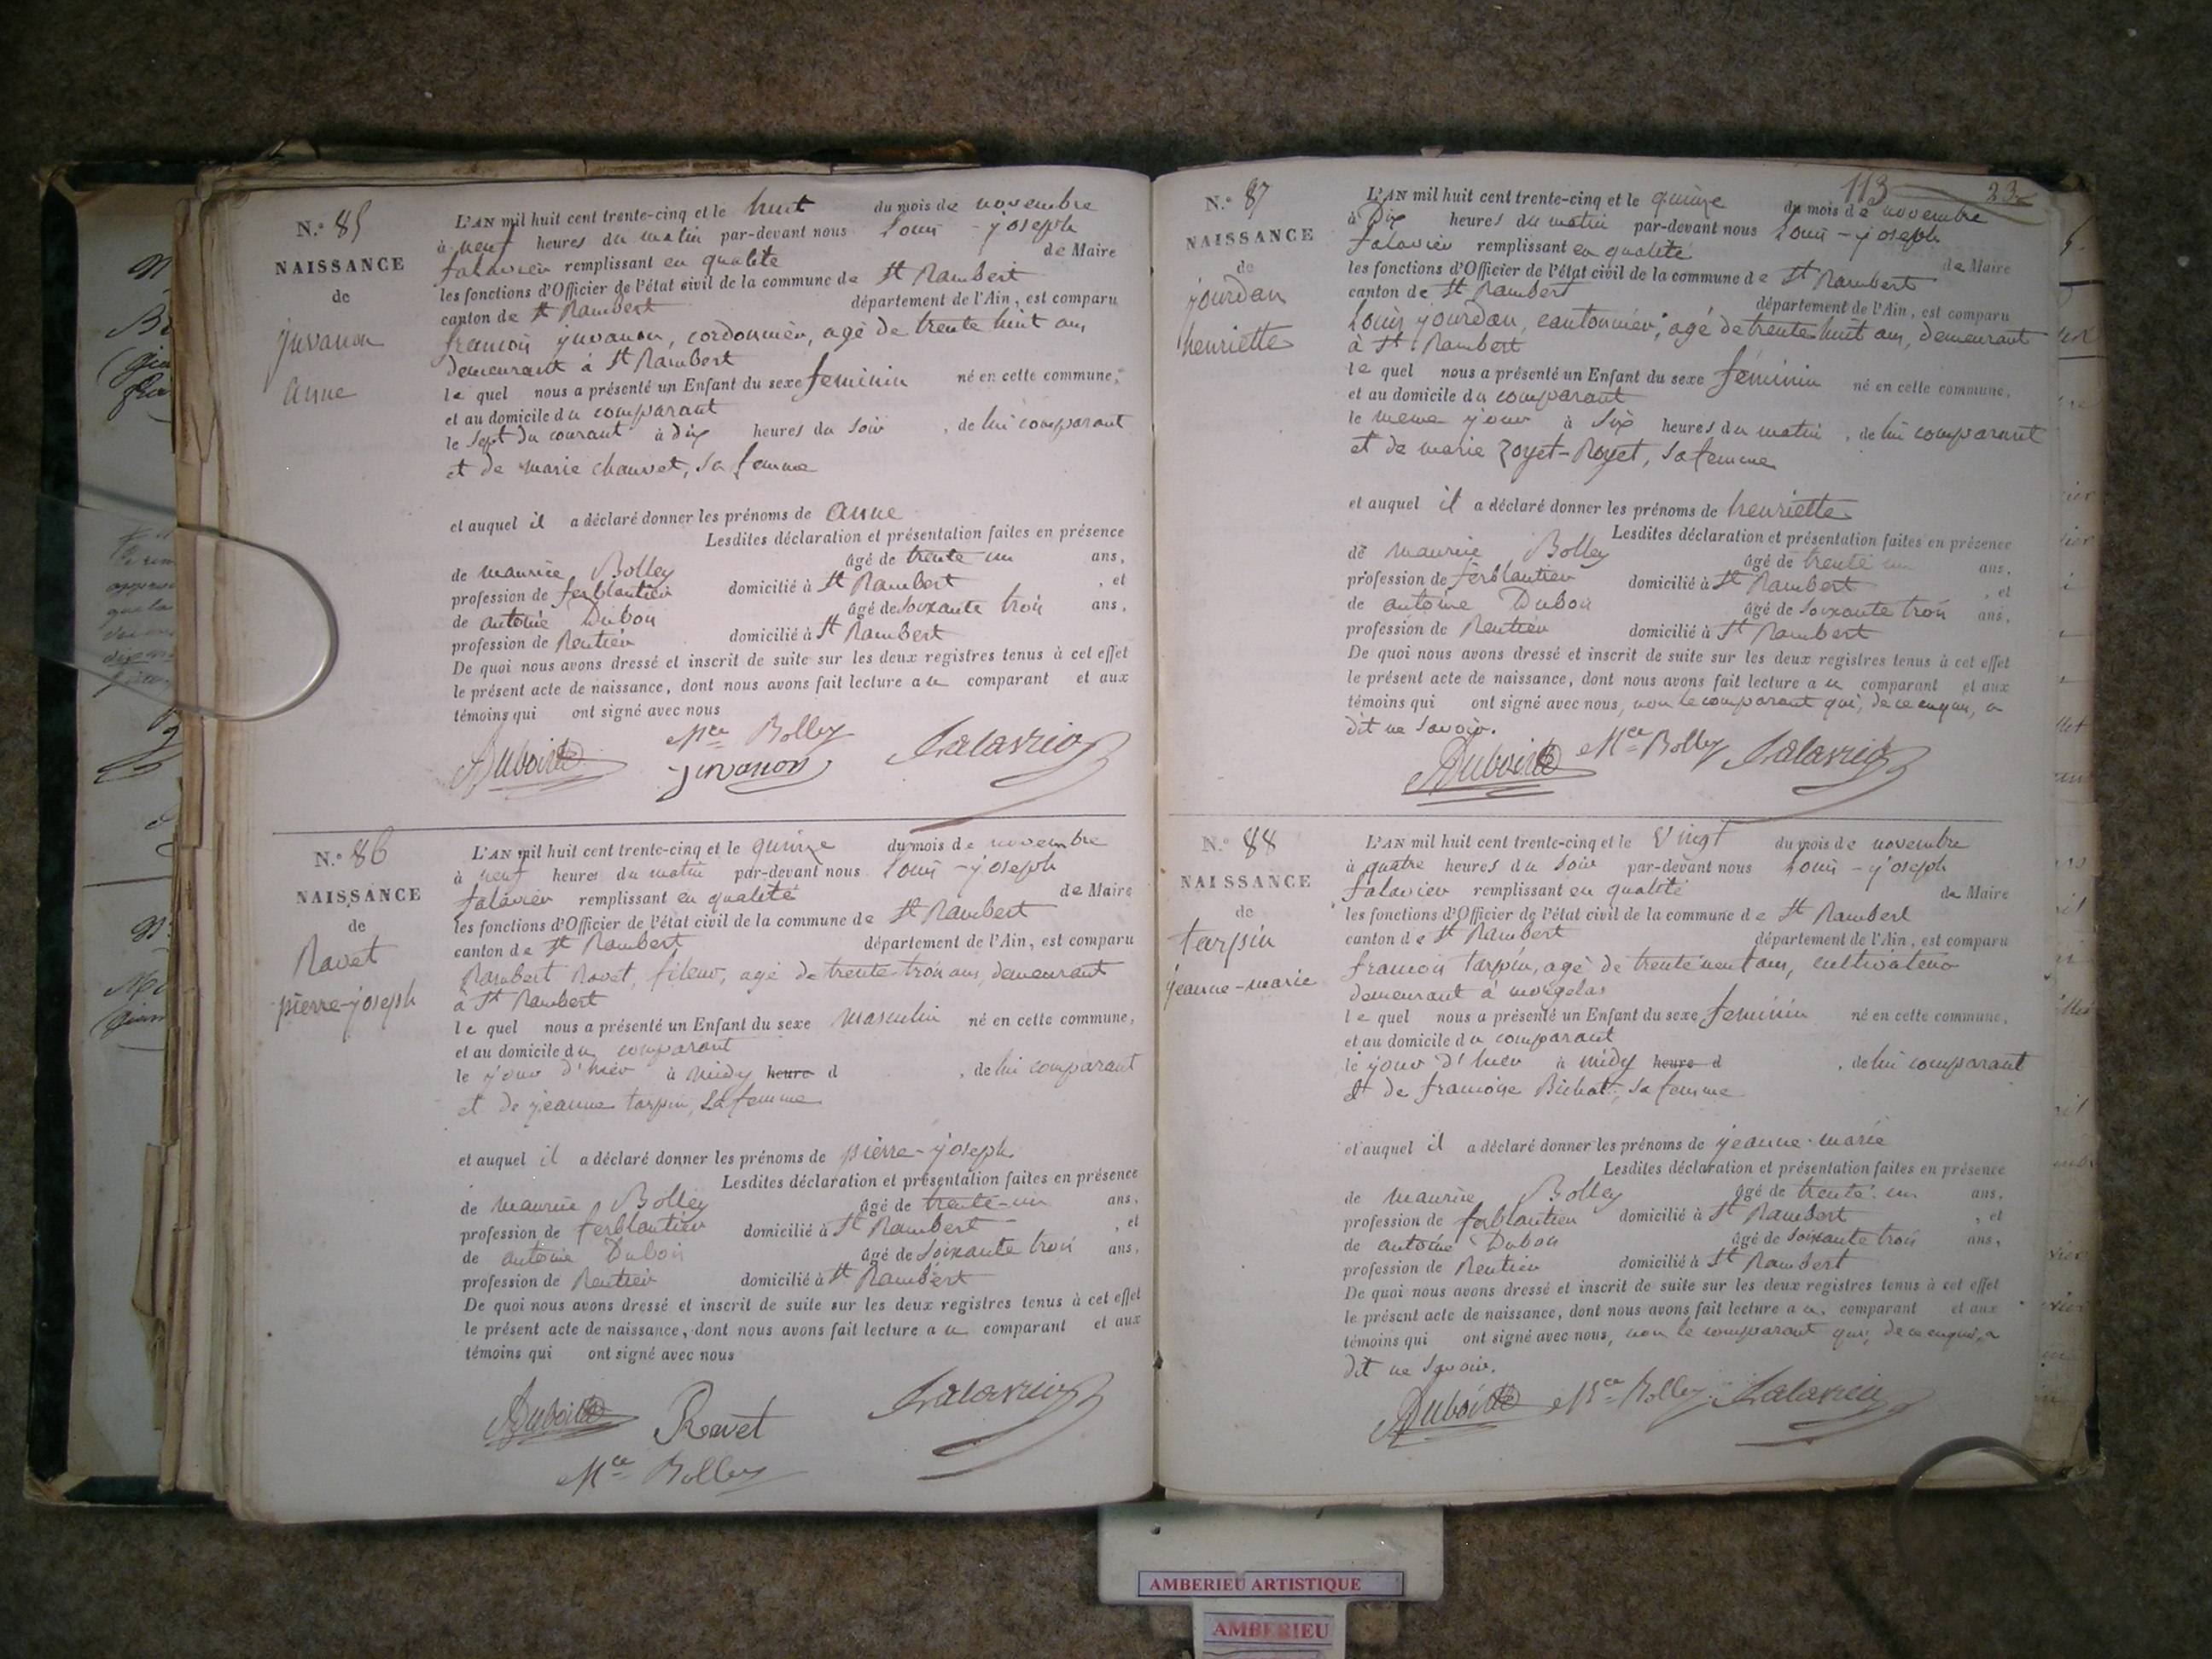 N.° 85
NAISSANCE
de
juvanon
anne
L'AN mil huit cent trente-cinq et le huit du mois de novembre
à neuf heures du matin par-devant nous Louis - joseph
falavier remplissant en qualité de Maire
les fonctions d'Officier de l'état civil de la commune de St Rambert
canton de St Rambert département de l'Ain, est comparu
françois juvanon, cordonnier, agé de trente huit ans
demeurant à St Rambert
le quel nous a présenté un Enfant du sexe feminin né en cette commune,
et au domicile du comparant
le sept du courant à dix heures du soir , de lui comparant
et de marie chauvet, sa femme
et auquel il a déclaré donner les prénoms de anne
Lesdites déclaration et présentation faites en présence
de maurice Bolley âgé de trente un ans,
profession de ferblantier domicilié à St Rambert , et
de antoine Dubois âgé de soixante trois ans,
profession de Rentier domicilié à St Rambert
De quoi nous avons dressé et inscrit de suite sur les deux registres tenus à cet effet
le présent acte de naissance, dont nous avons fait lecture au comparant et aux
témoins qui ont signé avec nous
Dubois Mce Bolley falavier
juvanon
N.° 86
NAISSANCE
de
Ravet
pierre-joseph
L'AN mil huit cent trente-cinq et le quinze du mois de novembre
à neuf heures du matin par-devant nous Louis - joseph
falavier remplissant en qualité de Maire
les fonctions d'Officier de l'état civil de la commune de St Rambert
canton de St Rambert département de l'Ain, est comparu
Rambert Ravet, fileur, agé de trente trois ans, demeurant
à St Rambert
le quel nous a présenté un Enfant du sexe masculin né en cette commune,
et au domicile du comparant
le jour d'hier à midy heure d , de lui comparant
et de jeanne tarpin, sa femme
et auquel il a déclaré donner les prénoms de pierre-joseph
Lesdites déclaration et présentation faites en présence
de maurice Bolley âgé de trente-un ans,
profession de ferblantier domicilié à St Rambert , et
de antoine Dubois âgé de soixante trois ans,
profession de Rentier domicilié à St Rambert
De quoi nous avons dressé et inscrit de suite sur les deux registres tenus à cet effet
le présent acte de naissance, dont nous avons fait lecture au comparant et aux
témoins qui ont signé avec nous
Dubois Ravet falavier
Mce Bolley
113 23
N.° 87
NAISSANCE
de
jourdan
henriette
L'AN mil huit cent trente-cinq et le quinze du mois de novembre
à Dix heures du matin par-devant nous Louis - joseph
falavier remplissant en qualité de Maire
les fonctions d'Officier de l'état civil de la commune de St Rambert
canton de St Rambert département de l'Ain, est comparu
Louis jourdan, cantonnier, agé de trente huit ans, demeurant
à St Rambert
le quel nous a présenté un Enfant du sexe féminin né en cette commune,
et au domicile du comparant
le meme jour à six heures du matin , de lui comparant
et de marie Royet-Royet, sa femme
et auquel il a déclaré donner les prénoms de henriette
Lesdites déclaration et présentation faites en présence
de maurice Bolley âgé de trente un ans,
profession de ferblantier domicilié à St Rambert , et
de antoine Dubois âgé de soixante trois ans,
profession de Rentier domicilié à St Rambert
De quoi nous avons dressé et inscrit de suite sur les deux registres tenus à cet effet
le présent acte de naissance, dont nous avons fait lecture au comparant et aux
témoins qui ont signé avec nous, non le comparant qui, de ce enquis, a
dit ne savoir.
Dubois Mce Bolley falavier
N.° 88
NAISSANCE
de
tarpin
jeanne-marie
L'AN mil huit cent trente-cinq et le vingt du mois de novembre
à quatre heures du soir par-devant nous Louis - joseph
falavier remplissant en qualité de Maire
les fonctions d'Officier de l'état civil de la commune de St Rambert
canton de St Rambert département de l'Ain, est comparu
françois tarpin, agé de trente neuf ans, cultivateur
demeurant à morgelas
le quel nous a présenté un Enfant du sexe feminin né en cette commune,
et au domicile du comparant
le jour d'hier à midy heure d , de lui comparant
et de françoise Bichat, sa femme
et auquel il a déclaré donner les prénoms de jeanne-marie
Lesdites déclaration et présentation faites en présence
de maurice Bolley âgé de trente-un ans,
profession de ferblantier domicilié à St Rambert , et
de antoine Dubois âgé de soixante trois ans,
profession de Rentier domicilié à St Rambert
De quoi nous avons dressé et inscrit de suite sur les deux registres tenus à cet effet
le présent acte de naissance, dont nous avons fait lecture au comparant et aux
témoins qui ont signé avec nous, non le comparant qui, de ce enquis, a
dit ne savoir.
Dubois Mce Bolley falavier
AMBERIEU ARTISTIQUE
AMBERIEU